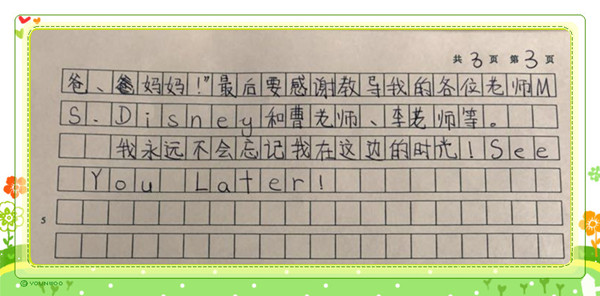 共 3 页 第 3 页
爸、爸妈妈！”最后要感谢教导我的各位老师M
S.Disney和曹老师、李老师等。
我永远不会忘记我在这边的时光！See
You Later!
5